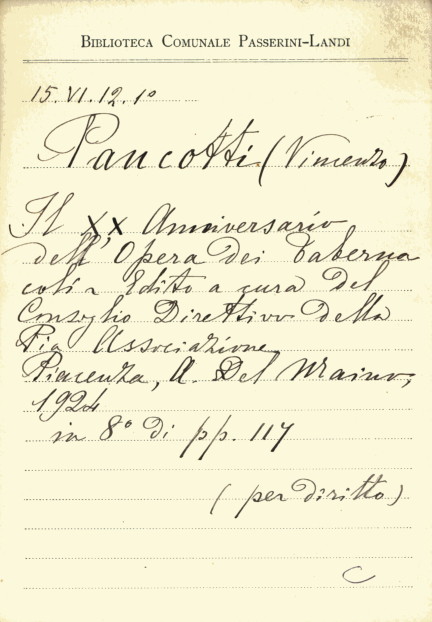 BIBLIOTECA COMUNALE PASSERINI-LANDI
15.VI.12.1º
Pancotti (Vincenzo)
Il XX Anniversario
dell'Opera dei Taberna
coli ~ Edito a cura del
Consiglio Direttivo della
Pia Associazione
Piacenza, A. Del Maino,
1924
in 8º di pp. 117
(per diritto)
C